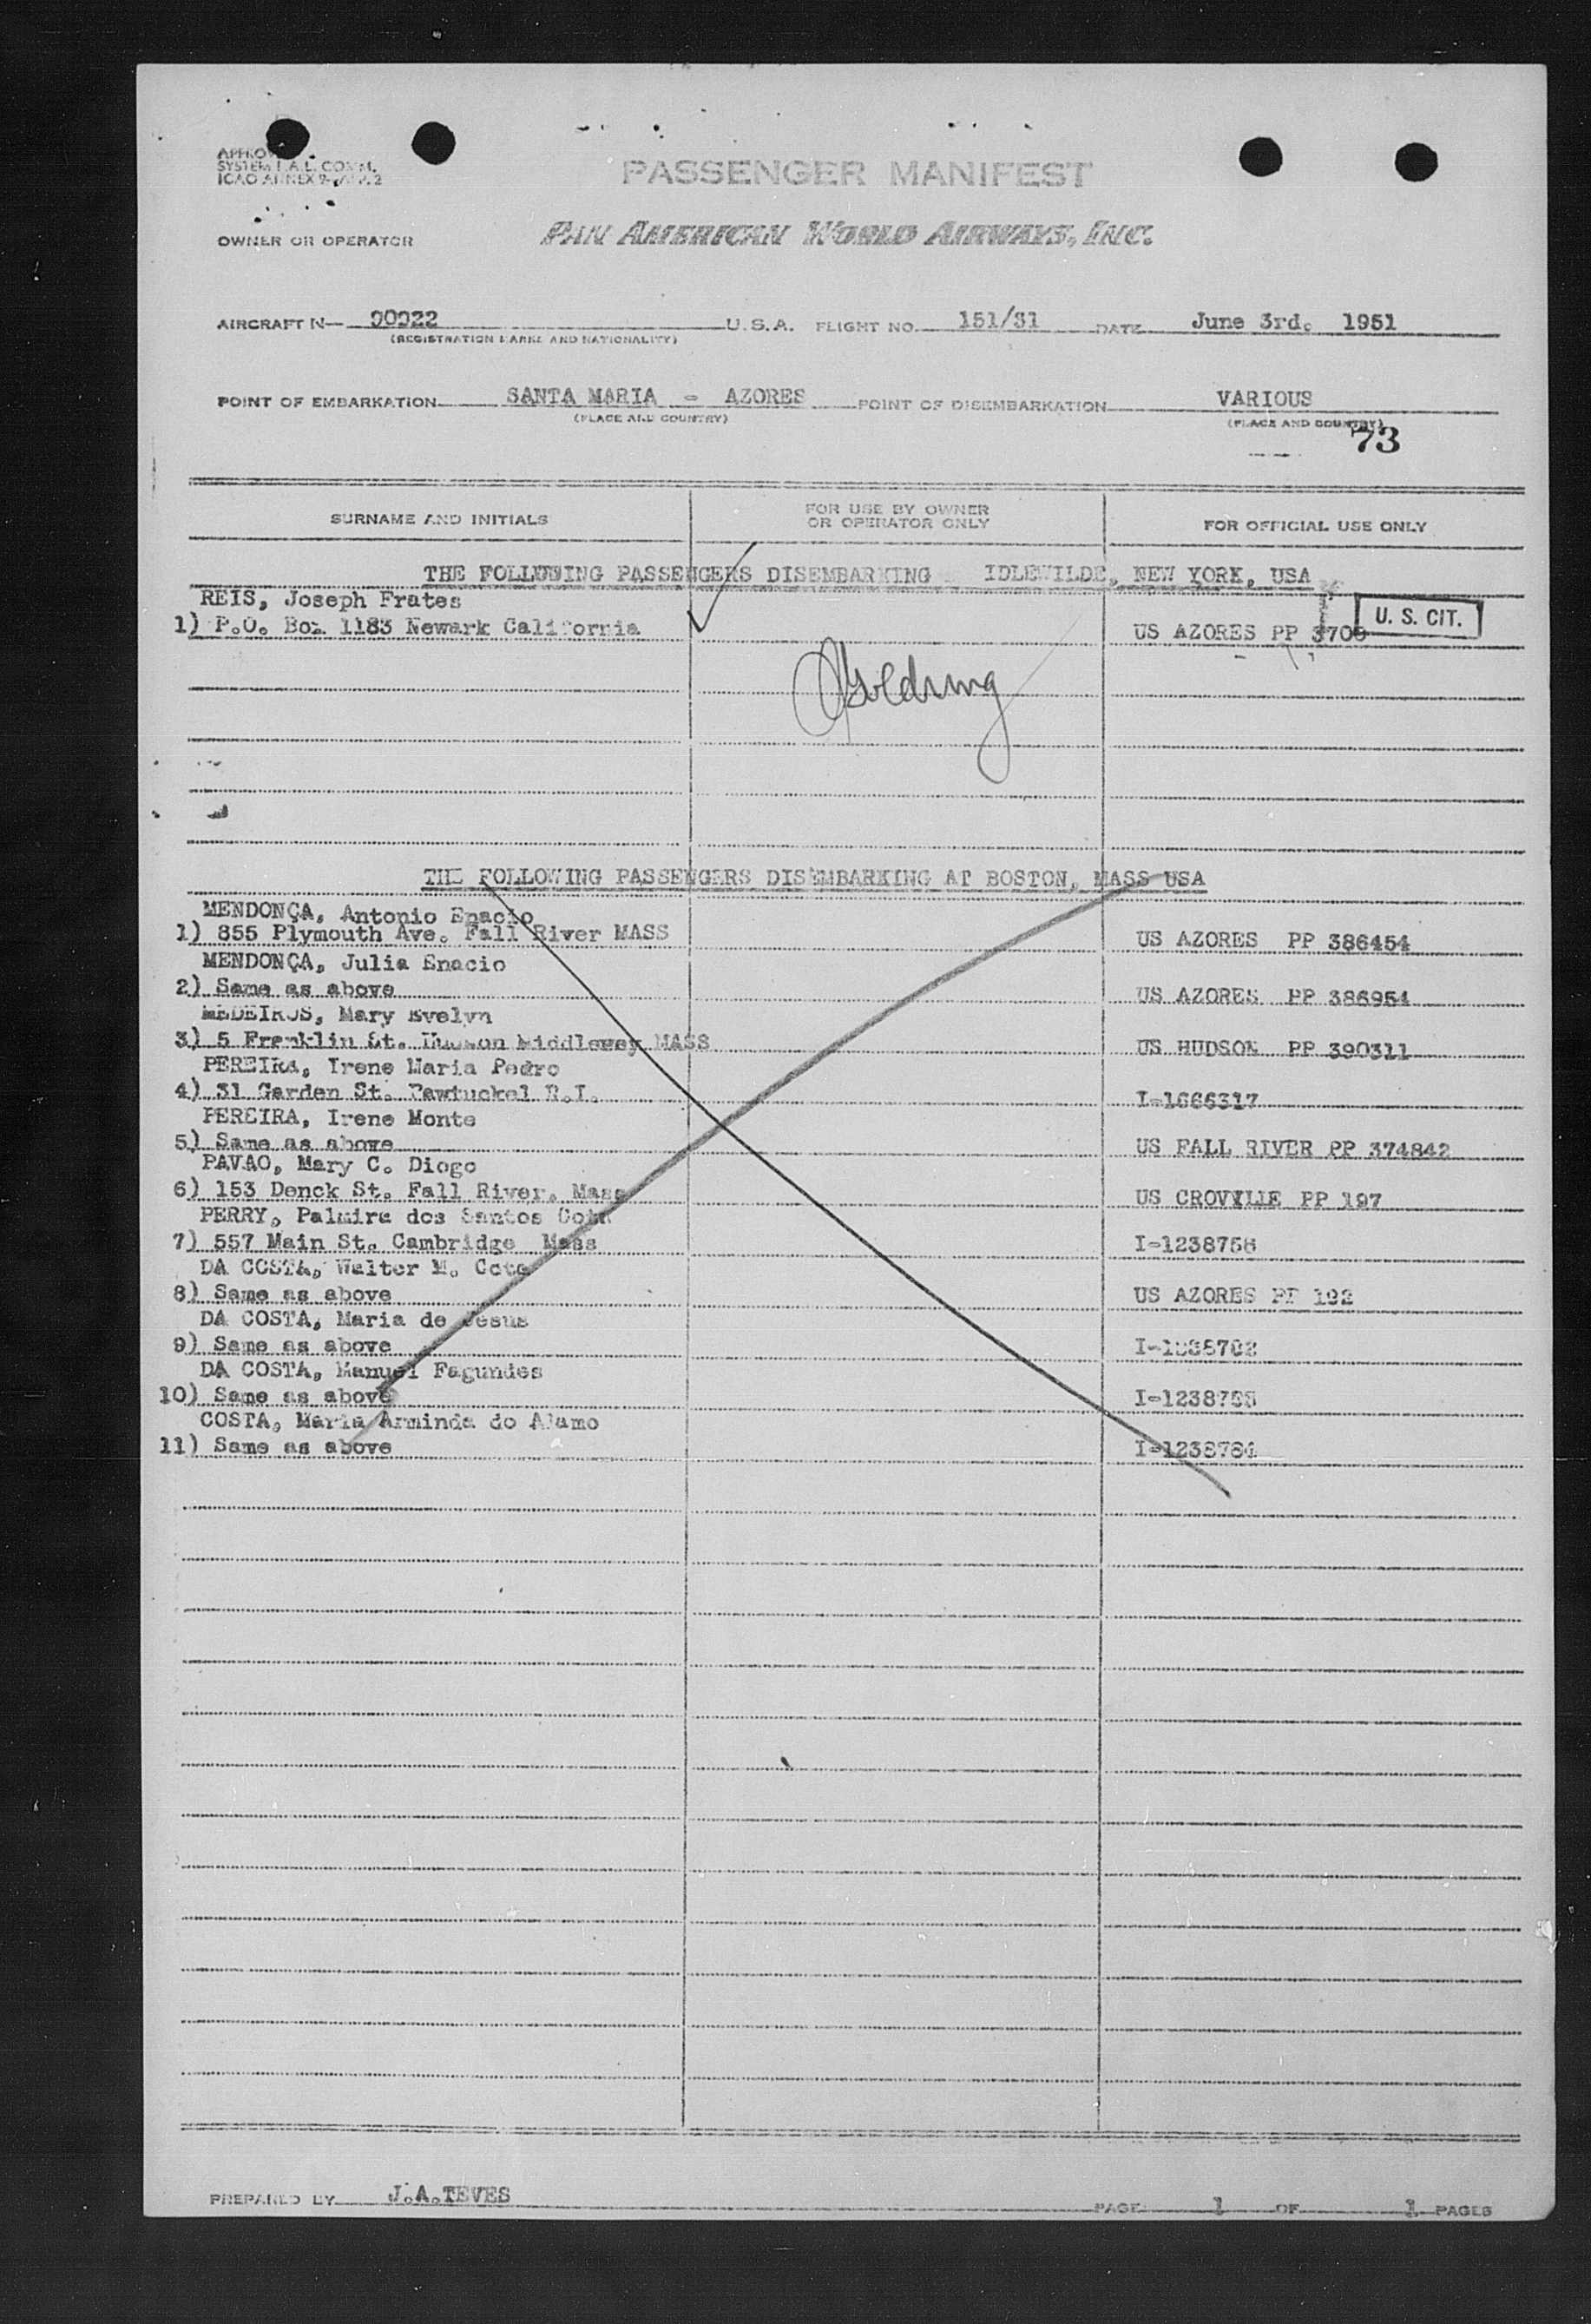 PASSENGER MANIFEST
OWNER OR OPERATOR PAN AMERICAN WORLD AIRWAYS, INC.
AIRCRAFT N— 90922 U.S.A. FLIGHT NO. 151/31 DATE June 3rd. 1951
(REGISTRATION MARKS AND NATIONALITY)
POINT OF EMBARKATION SANTA MARIA - AZORES POINT OF DISEMBARKATION VARIOUS
(PLACE AND COUNTRY) (PLACE AND COUNTRY)
73
SURNAME AND INITIALS FOR USE BY OWNER OR OPERATOR ONLY FOR OFFICIAL USE ONLY
THE FOLLOWING PASSENGERS DISEMBARKING IDLEWILDE, NEW YORK, USA
REIS, Joseph Frates
1) P.O. Box 1183 Newark California US AZORES PP U. S. CIT.
Golding
THE FOLLOWING PASSENGERS DISEMBARKING AT BOSTON, MASS USA
MENDONÇA, Antonio Enacio
1) 855 Plymouth Ave. Fall River MASS US AZORES PP 386454
MENDONÇA, Julia Enacio
2) Same as above US AZORES PP 386954
MEDEIROS, Mary Evelyn
3) 5 Franklin St. Hudson Middlesex MASS US HUDSON PP 390311
PEREIRA, Irene Maria Pedro
4) 31 Garden St. Pawtuckel R.I. I-1666317
PEREIRA, Irene Monte
5) Same as above US FALL RIVER PP 374842
PAVAO, Mary C. Diogo
6) 153 Donck St. Fall River. Mass US PP 197
PERRY, Palmira dos Santos
7) 557 Main St. Cambridge Mass I-1238758
DA COSTA, Walter M. Cota
8) Same as above US AZORES PP 192
DA COSTA, Maria de Jesus
9) Same as above
DA COSTA, Manuel Fagundes
10) Same as above
COSTA, Maria Arminda do Alamo
11) Same as above I-1238784
PREPARED BY J.A.TEVES PAGE 1 OF 1 PAGES